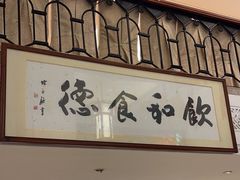 飲和食德